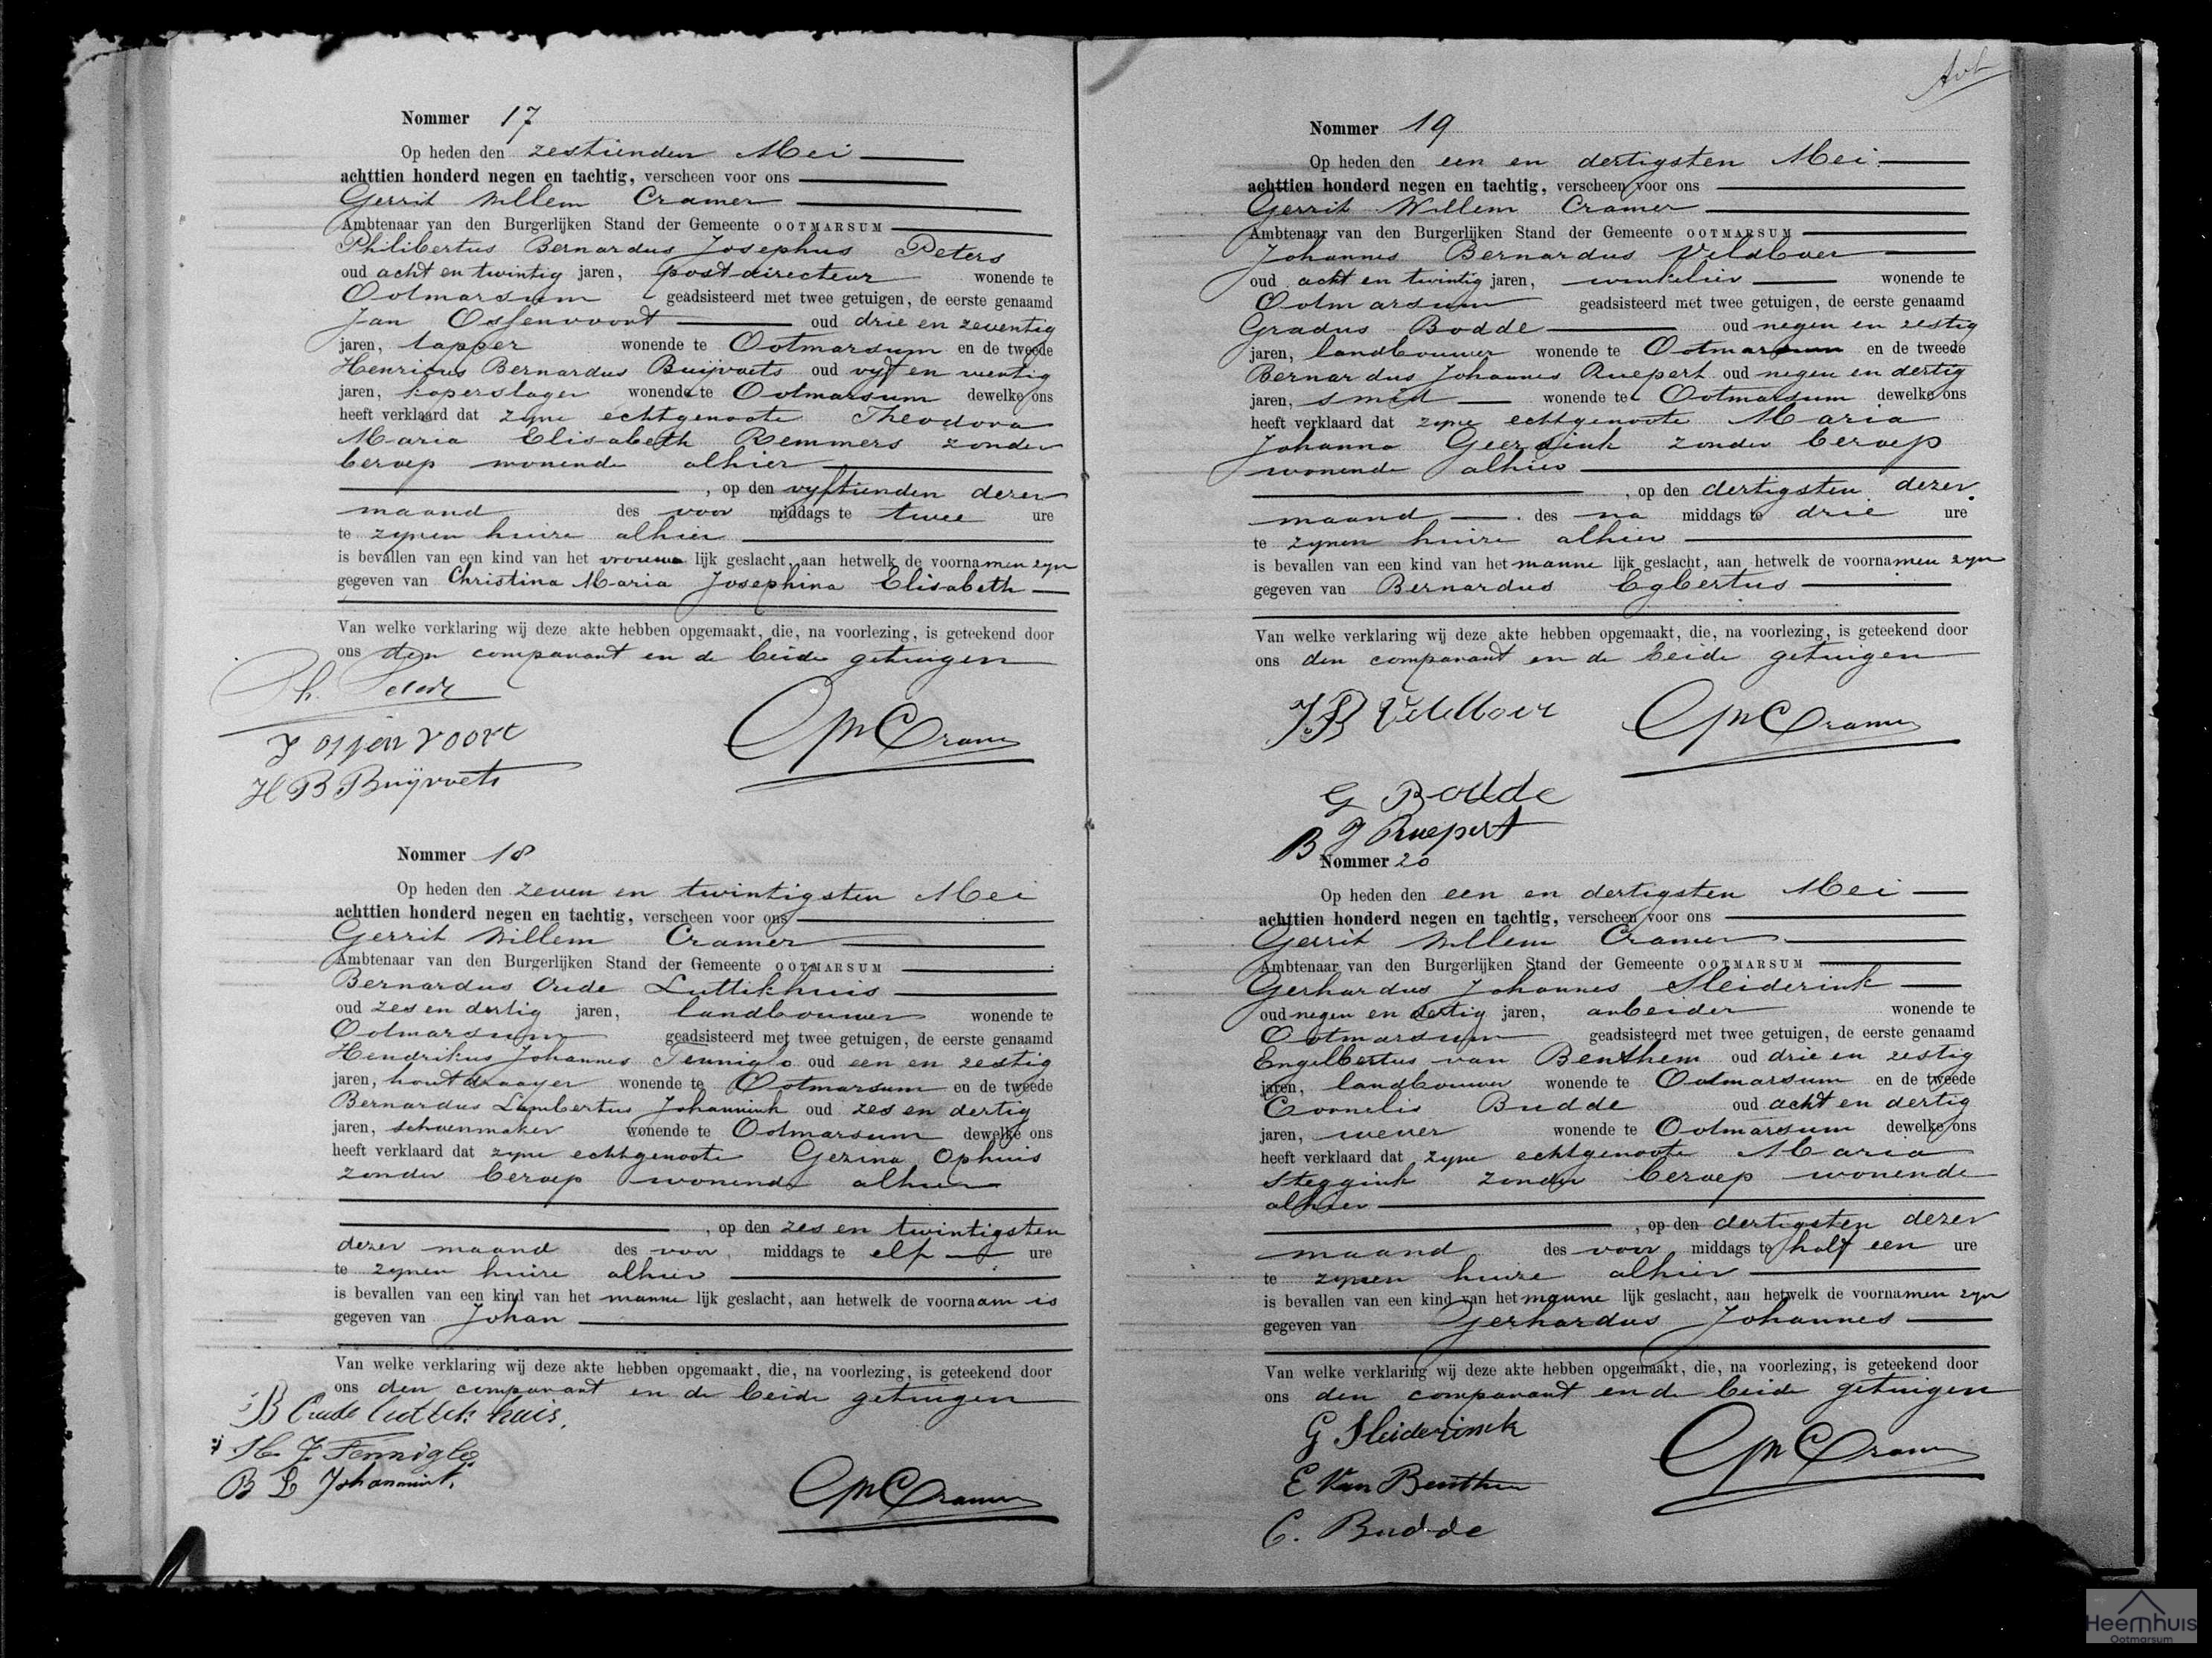 Nommer 17
Op heden den zestienden Mei
achttien honderd negen en tachtig, verscheen voor ons
Gerrit Willem Cramer
Ambtenaar van den Burgerlijken Stand der Gemeente OOTMARSUM
Philibertus Bernardus Josephus Peters
oud acht en twintig jaren, postdirecteur wonende te
Ootmarsum geadsisteerd met twee getuigen, de eerste genaamd
Jan Ossenvoort oud drie en zeventig
jaren, tapper wonende te Ootmarsum en de tweede
Henricus Bernardus Buijvoets oud vijf en
jaren, koperslager wonende te Ootmarsum dewelke ons
heeft verklaard dat zijne echtgenoote Theodora
Maria Elisabeth Remmers zonder
beroep wonende alhier
, op den vijftienden dezer
maand des voor middags te twee ure
te zijnen huize alhier
is bevallen van een kind van het vrouwe lijk geslacht, aan hetwelk de voornamen zijn
gegeven van Christina Maria Josephina Elisabeth
Van welke verklaring wij deze akte hebben opgemaakt, die, na voorlezing, is geteekend door
ons den comparant en de beide getuigen
Ph. Peters
J ossenvoort
GW Cramer
H B Buijvoets
Nommer 18
Op heden den zeven en twintigsten Mei
achttien honderd negen en tachtig, verscheen voor ons
Gerrit Willem Cramer
Ambtenaar van den Burgerlijken Stand der Gemeente OOTMARSUM
Bernardus Oude Luttikhuis
oud zes en dertig jaren, landbouwer wonende te
Ootmarsum geadsisteerd met twee getuigen, de eerste genaamd
Hendrikus Johannes Tenniglo oud een en zestig
jaren, houtdraayer wonende te Ootmarsum en de tweede
Bernardus Lambertus Johannink oud zes en dertig
jaren, schoenmaker wonende te Ootmarsum dewelke ons
heeft verklaard dat zijne echtgenoote Gezina Ophuis
zonder beroep wonende alhier
, op den zes en twintigsten
dezer maand des voor middags te elf ure
te zijnen huize alhier
is bevallen van een kind van het manne lijk geslacht, aan hetwelk de voornaam is
gegeven van Johan
Van welke verklaring wij deze akte hebben opgemaakt, die, na voorlezing, is geteekend door
ons den comparant en de beide getuigen
B Oude luttikhuis
H. J. Tenniglo
B L Johannink.
GW Cramer
Nommer 19
Op heden den een en dertigsten Mei
achttien honderd negen en tachtig, verscheen voor ons
Gerrit Willem Cramer
Ambtenaar van den Burgerlijken Stand der Gemeente OOTMARSUM
Johannes Bernardus Veldboer
oud acht en twintig jaren, winkelier wonende te
Ootmarsum geadsisteerd met twee getuigen, de eerste genaamd
Gradus Bodde oud negen en zestig
jaren, landbouwer wonende te Ootmarsum en de tweede
Bernardus Johannes Ruepert oud negen en dertig
jaren, smid wonende te Ootmarsum dewelke ons
heeft verklaard dat zijne echtgenoote Maria
Johanna Geerdink zonder beroep
wonende alhier
, op den dertigsten dezer
maand des na middags te drie ure
te zijnen huize alhier
is bevallen van een kind van het manne lijk geslacht, aan hetwelk de voornamen zijn
gegeven van Bernardus Egbertus
Van welke verklaring wij deze akte hebben opgemaakt, die, na voorlezing, is geteekend door
ons den comparant en de beide getuigen
JB Veldboer
GW Cramer
G Bodde
B J Ruepert
Nommer 20
Op heden den een en dertigsten Mei
achttien honderd negen en tachtig, verscheen voor ons
Gerrit Willem Cramer
Ambtenaar van den Burgerlijken Stand der Gemeente OOTMARSUM
Gerhardus Johannes Sleiderink
oud negen en dertig jaren, arbeider wonende te
Ootmarsum geadsisteerd met twee getuigen, de eerste genaamd
Engelbertus van Benthem oud drie en zestig
jaren, landbouwer wonende te Ootmarsum en de tweede
Cornelis Budde oud acht en dertig
jaren, wever wonende te Ootmarsum dewelke ons
heeft verklaard dat zijne echtgenoote Maria
Steggink zonder beroep wonende
alhier
, op den dertigsten dezer
maand des voor middags te half een ure
te zijnen huize alhier
is bevallen van een kind van het manne lijk geslacht, aan hetwelk de voornamen zijn
gegeven van Gerhardus Johannes
Van welke verklaring wij deze akte hebben opgemaakt, die, na voorlezing, is geteekend door
ons den comparant en de beide getuigen
G Sleiderinck
GW Cramer
E Van Benthem
C. Budde
Heemhuis
Ootmarsum